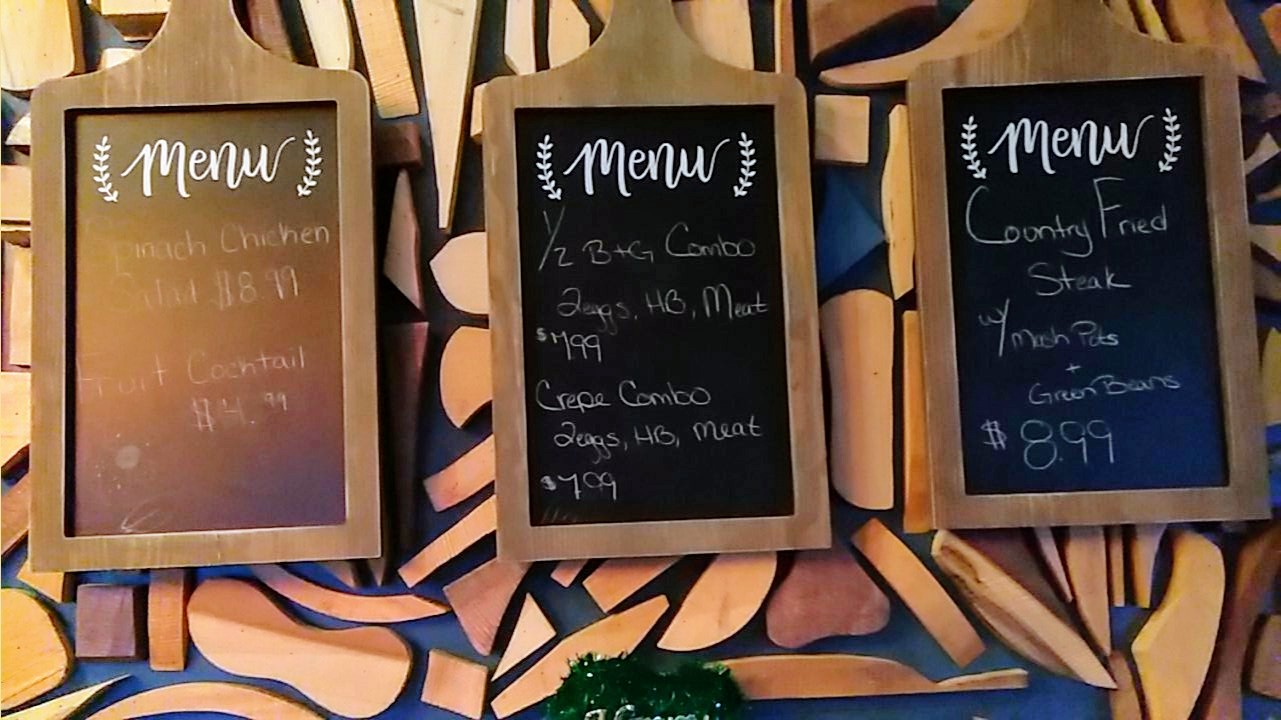 Menu
Spinach Chicken
Salad $8.99
Fruit Cocktail
$4.99
Menu
1/2 B+G Combo
2eggs, HB, Meat
$7.99
Crepe Combo
2eggs, HB, meat
$7.99
Menu
Country Fried
Steak
w/ Mash Pots
+
Green Beans
$8.99